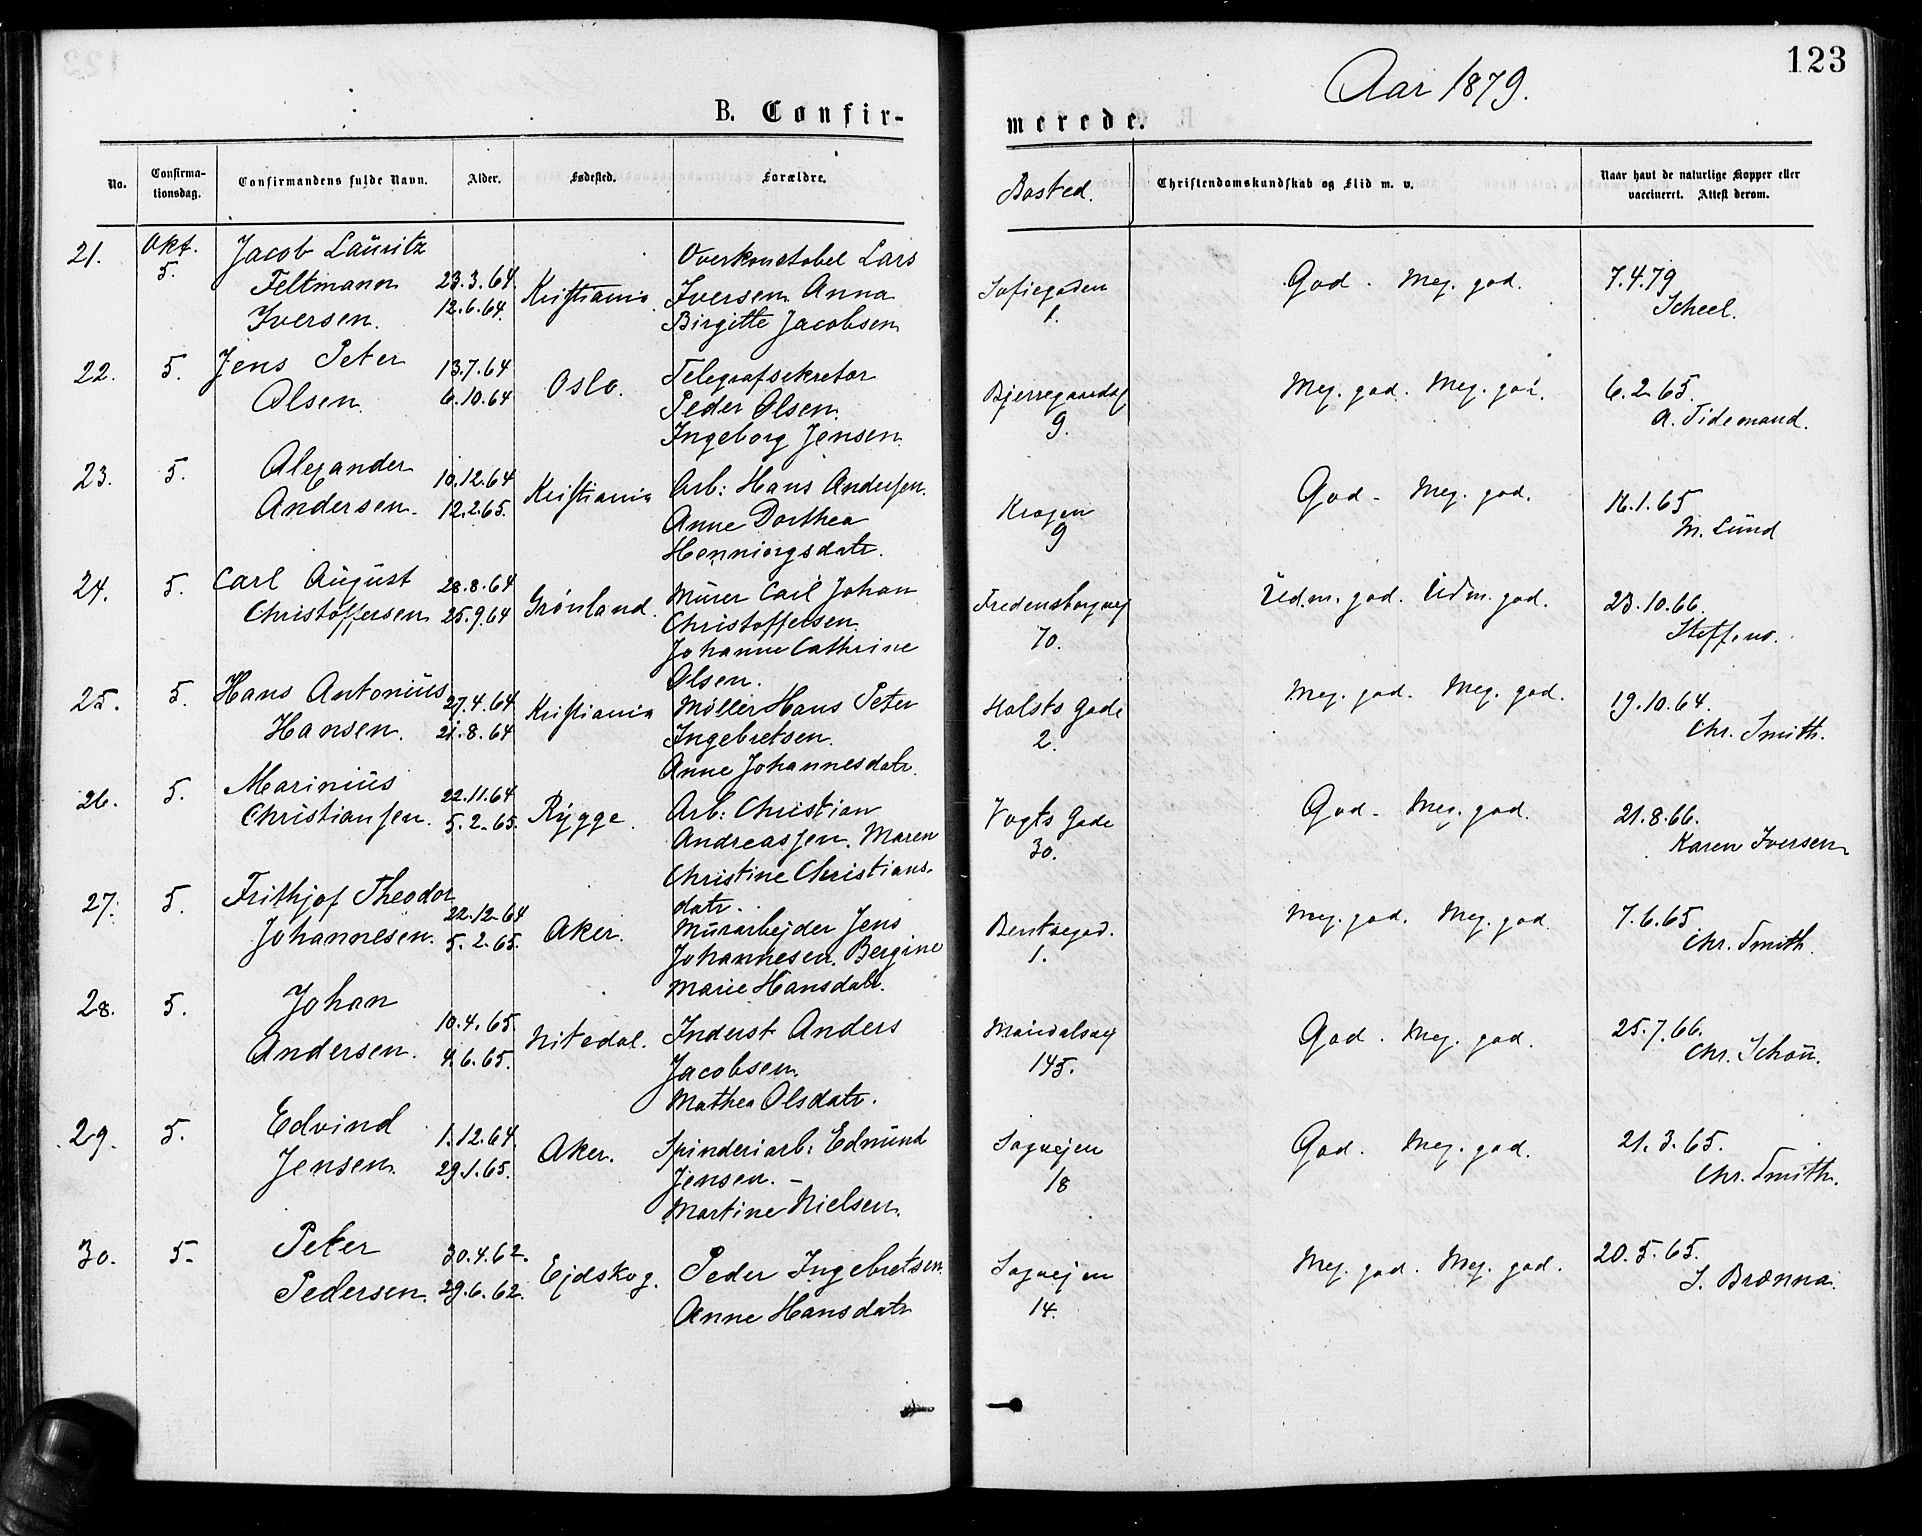 123
Aar 1879.
B. Confir-
merede.
No.
Confirma-
tionsdag.
Confirmandens fulde Navn.
Alder.
Fødested.
Forældre.
Bosted.
Christendomskundskab og Flid m. v.
Naar havt de naturlige Kopper eller
vaccineret. Attest derom.
21.
Okt.
5.
Jacob Lauritz
Feltmann
Iversen.
23.3.64.
12.6.64.
Kristiania.
Overkonstabel Lars
Iversen Anna
Birgitte Jacobsen
Sofiegaden
1.
God. Meg. god.
7.4.79
Scheel.
22.
5.
Jens Peter
Olsen
13.7.64
6.10.64
Oslo.
Telegrafsekretær
Peder Olsen.
Ingeborg Jensen.
Bjerregaardsg
9.
Meg. god. Meg. god.
6.2.65.
A. Tidemand.
23.
5.
Alexander
Andersen.
10.12.64
12.2.65.
Kristiania
Arb: Hans Andersen.
Anne Dorthea
Henningsdatr.
Krogen
9
God - Meg. god.
16.1.65
M. Lund
24.
5.
Carl August
Christoffersen
28.8.64
25.9.64
Grønland.
Murer Carl Johan
Christoffersen
Johanne Cathrine
Olsen.
Fredensborgvej
70.
Udm. god. Udm. god.
23.10.66.
Steffens.
25.
5.
Hans Antonius
Hansen.
27.4.64
21.8.64
Kristiania
Møller Hans Peter
Ingebretsen.
Anne Johannesdatr.
Holsts Gade
2.
Meg. god. Meg. god.
19.10.64.
Chr. Smith.
26.
5.
Marinius
Christiansen.
22.11.64
5.2.65.
Rygge.
Arb: Christian
Andreassen. Maren
Christine Christians-
datr.
Vogts Gade
30.
God - Meg. god.
21.8.66.
Karen Iversen
27.
5.
Frithjof Theodor
Johannesen.
22.12.64
5.2.65.
Aker.
Murarbejder Jens
Johannesen. Bergine
Marie Hansdatr.
Bentsegad.
1.
Meg. god. Meg. god
7.6.65.
Chr. Smith.
28.
5.
Johan
Andersen.
10.4.65.
4.6.65.
Nitedal.
Inderst Anders
Jacobsen.
Mathea Olsdatr.
Maridalsvej
145.
God. Meg. god.
25.7.66.
Chr. Schou.
29.
5.
Edvind
Jensen.
1.12.64.
29.1.65.
Aker.
Spinderiarb: Edmund
Jensen. -
Martine Nielsen.
Sagvejen
18
God. Meg. god.
21.3.65.
Chr. Smith.
30.
5.
Peter
Pedersen.
30.4.62.
29.6.62.
Ejdskog.
Peder Ingebretsen.
Anne Hansdatr
Sagvejen
14.
Meg. god. Meg. god.
20.5.65.
S. Brænna.